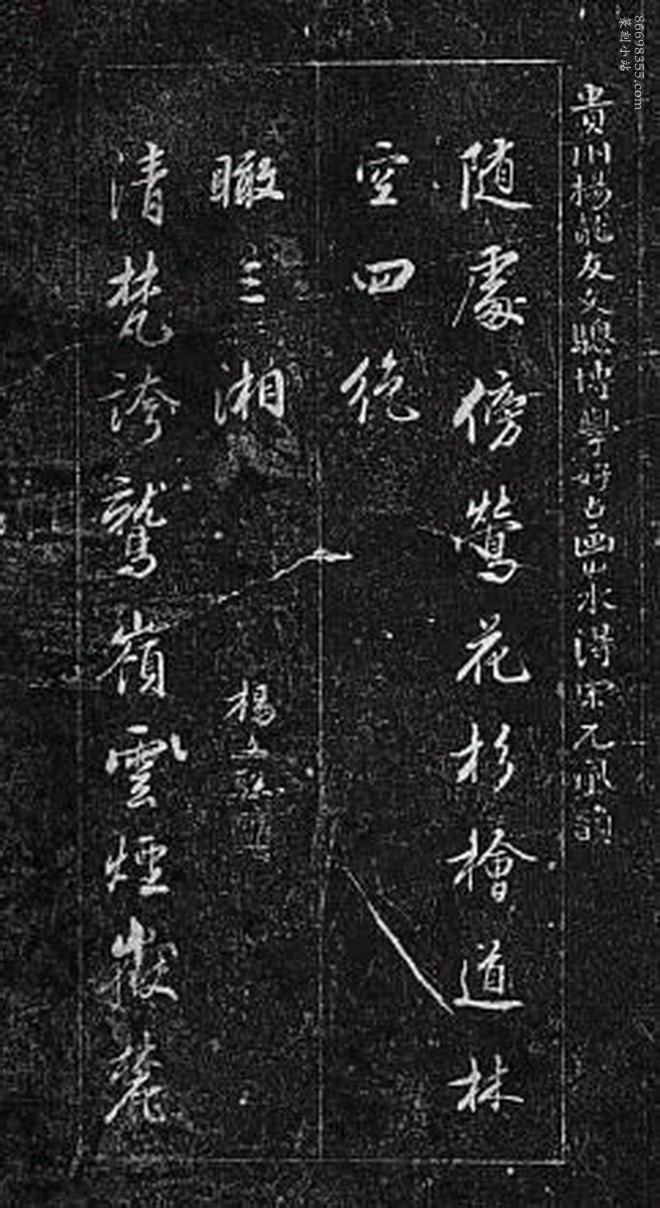 86698355.com
篆刻小站
貴州楊龍友文驄博學好古画山水得宋元風韵
随處傍鶯花杉檜道林
空四绝
清梵誇鷲嶺雲煙嶽麓
瞰三湘
楊文驄